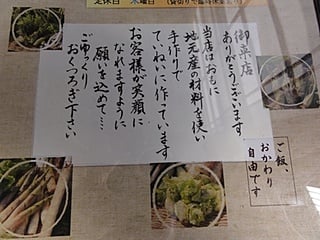 定休日 木曜日
御来店
ありがとうございます。
当店はおもに
地元産の材料を使い
手作りで
ていねいに作っています
お客様が笑顔に
なれますように
願いを込めて…
ごゆっくり
おくつろぎ下さい
ご飯、
おかわり
自由です